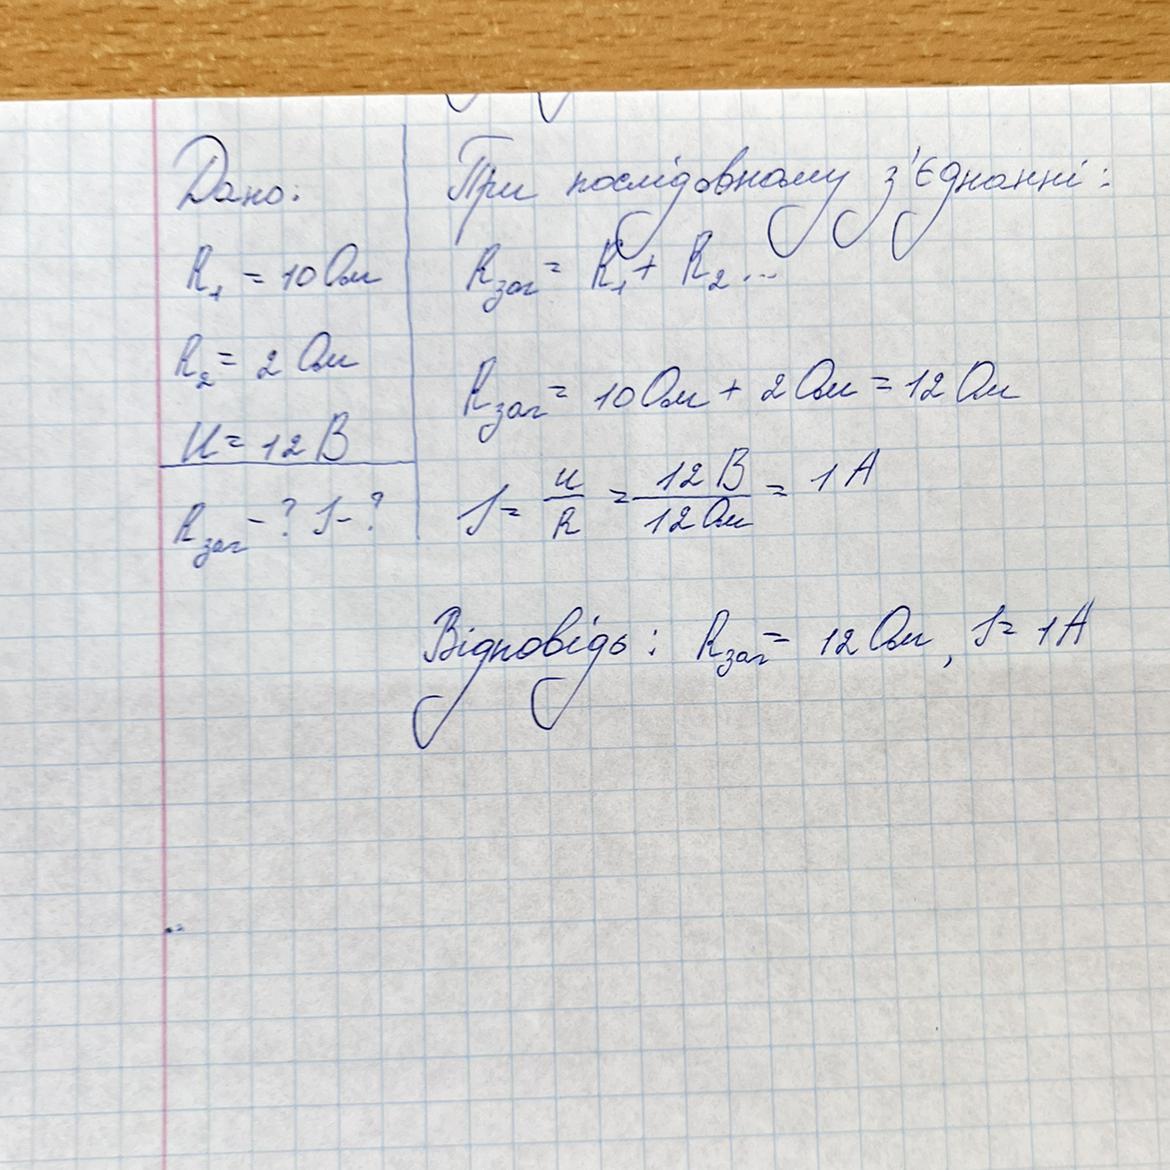 Дано:
R₁ = 10 Ом
R₂ = 2 Ом
U = 12 В
Rзаг - ? I - ?
При послідовному з'єднанні:
Rзаг = R₁ + R₂ ...
Rзаг = 10 Ом + 2 Ом = 12 Ом
I = U/R = 12 В/12 Ом = 1 А
Відповідь: Rзаг = 12 Ом, I = 1 А